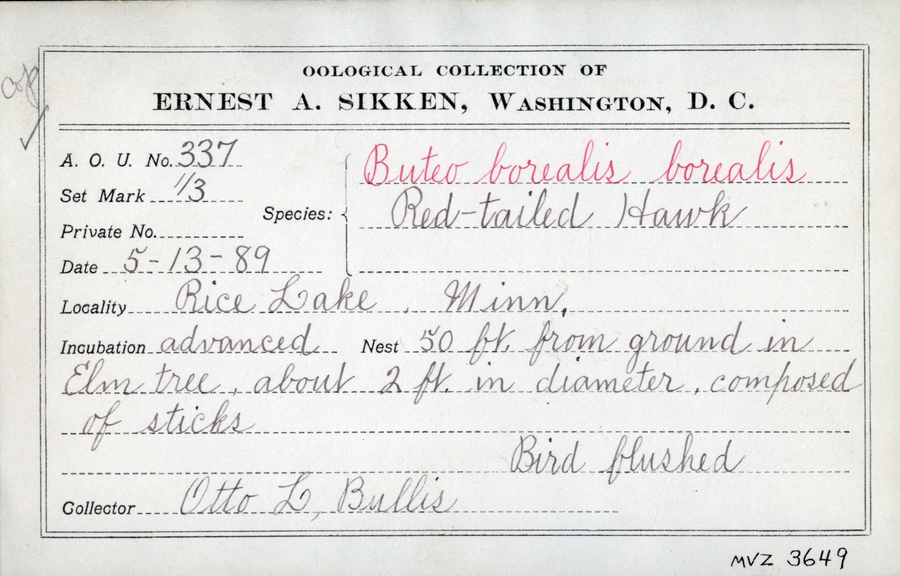 OOLOGICAL COLLECTION OF
ERNEST A. SIKKEN, WASHINGTON, D. C.
cop
A. O. U. No. 337
Set Mark 1/3
Private No.
Date 5-13-89
Species: Buteo borealis borealis
Red-tailed Hawk
Locality Rice Lake, Minn.
Incubation advanced Nest 50 ft. from ground in
Elm tree, about 2 ft. in diameter, composed
of sticks
Bird flushed
Collector Otto L, Bullis
MVZ 3649